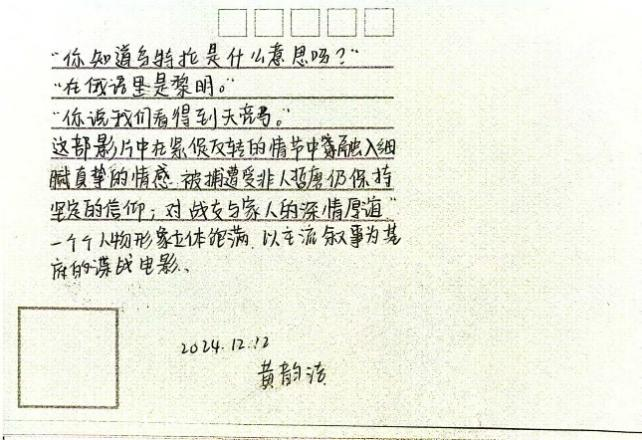 “你知道乌特拉是什么意思吗？”
“在俄语里是黎明。”
“你说我们看得到天亮吗。”
这部影片中在紧促反转的情节中穿融入细
腻真挚的情感.被捕遭受非人折磨仍保持
坚定的信仰；对战友与家人的深情厚谊”
一个个人物形象立体饱满.以主流叙事为基
底的谍战电影、
2024.12.12
黄韵洁